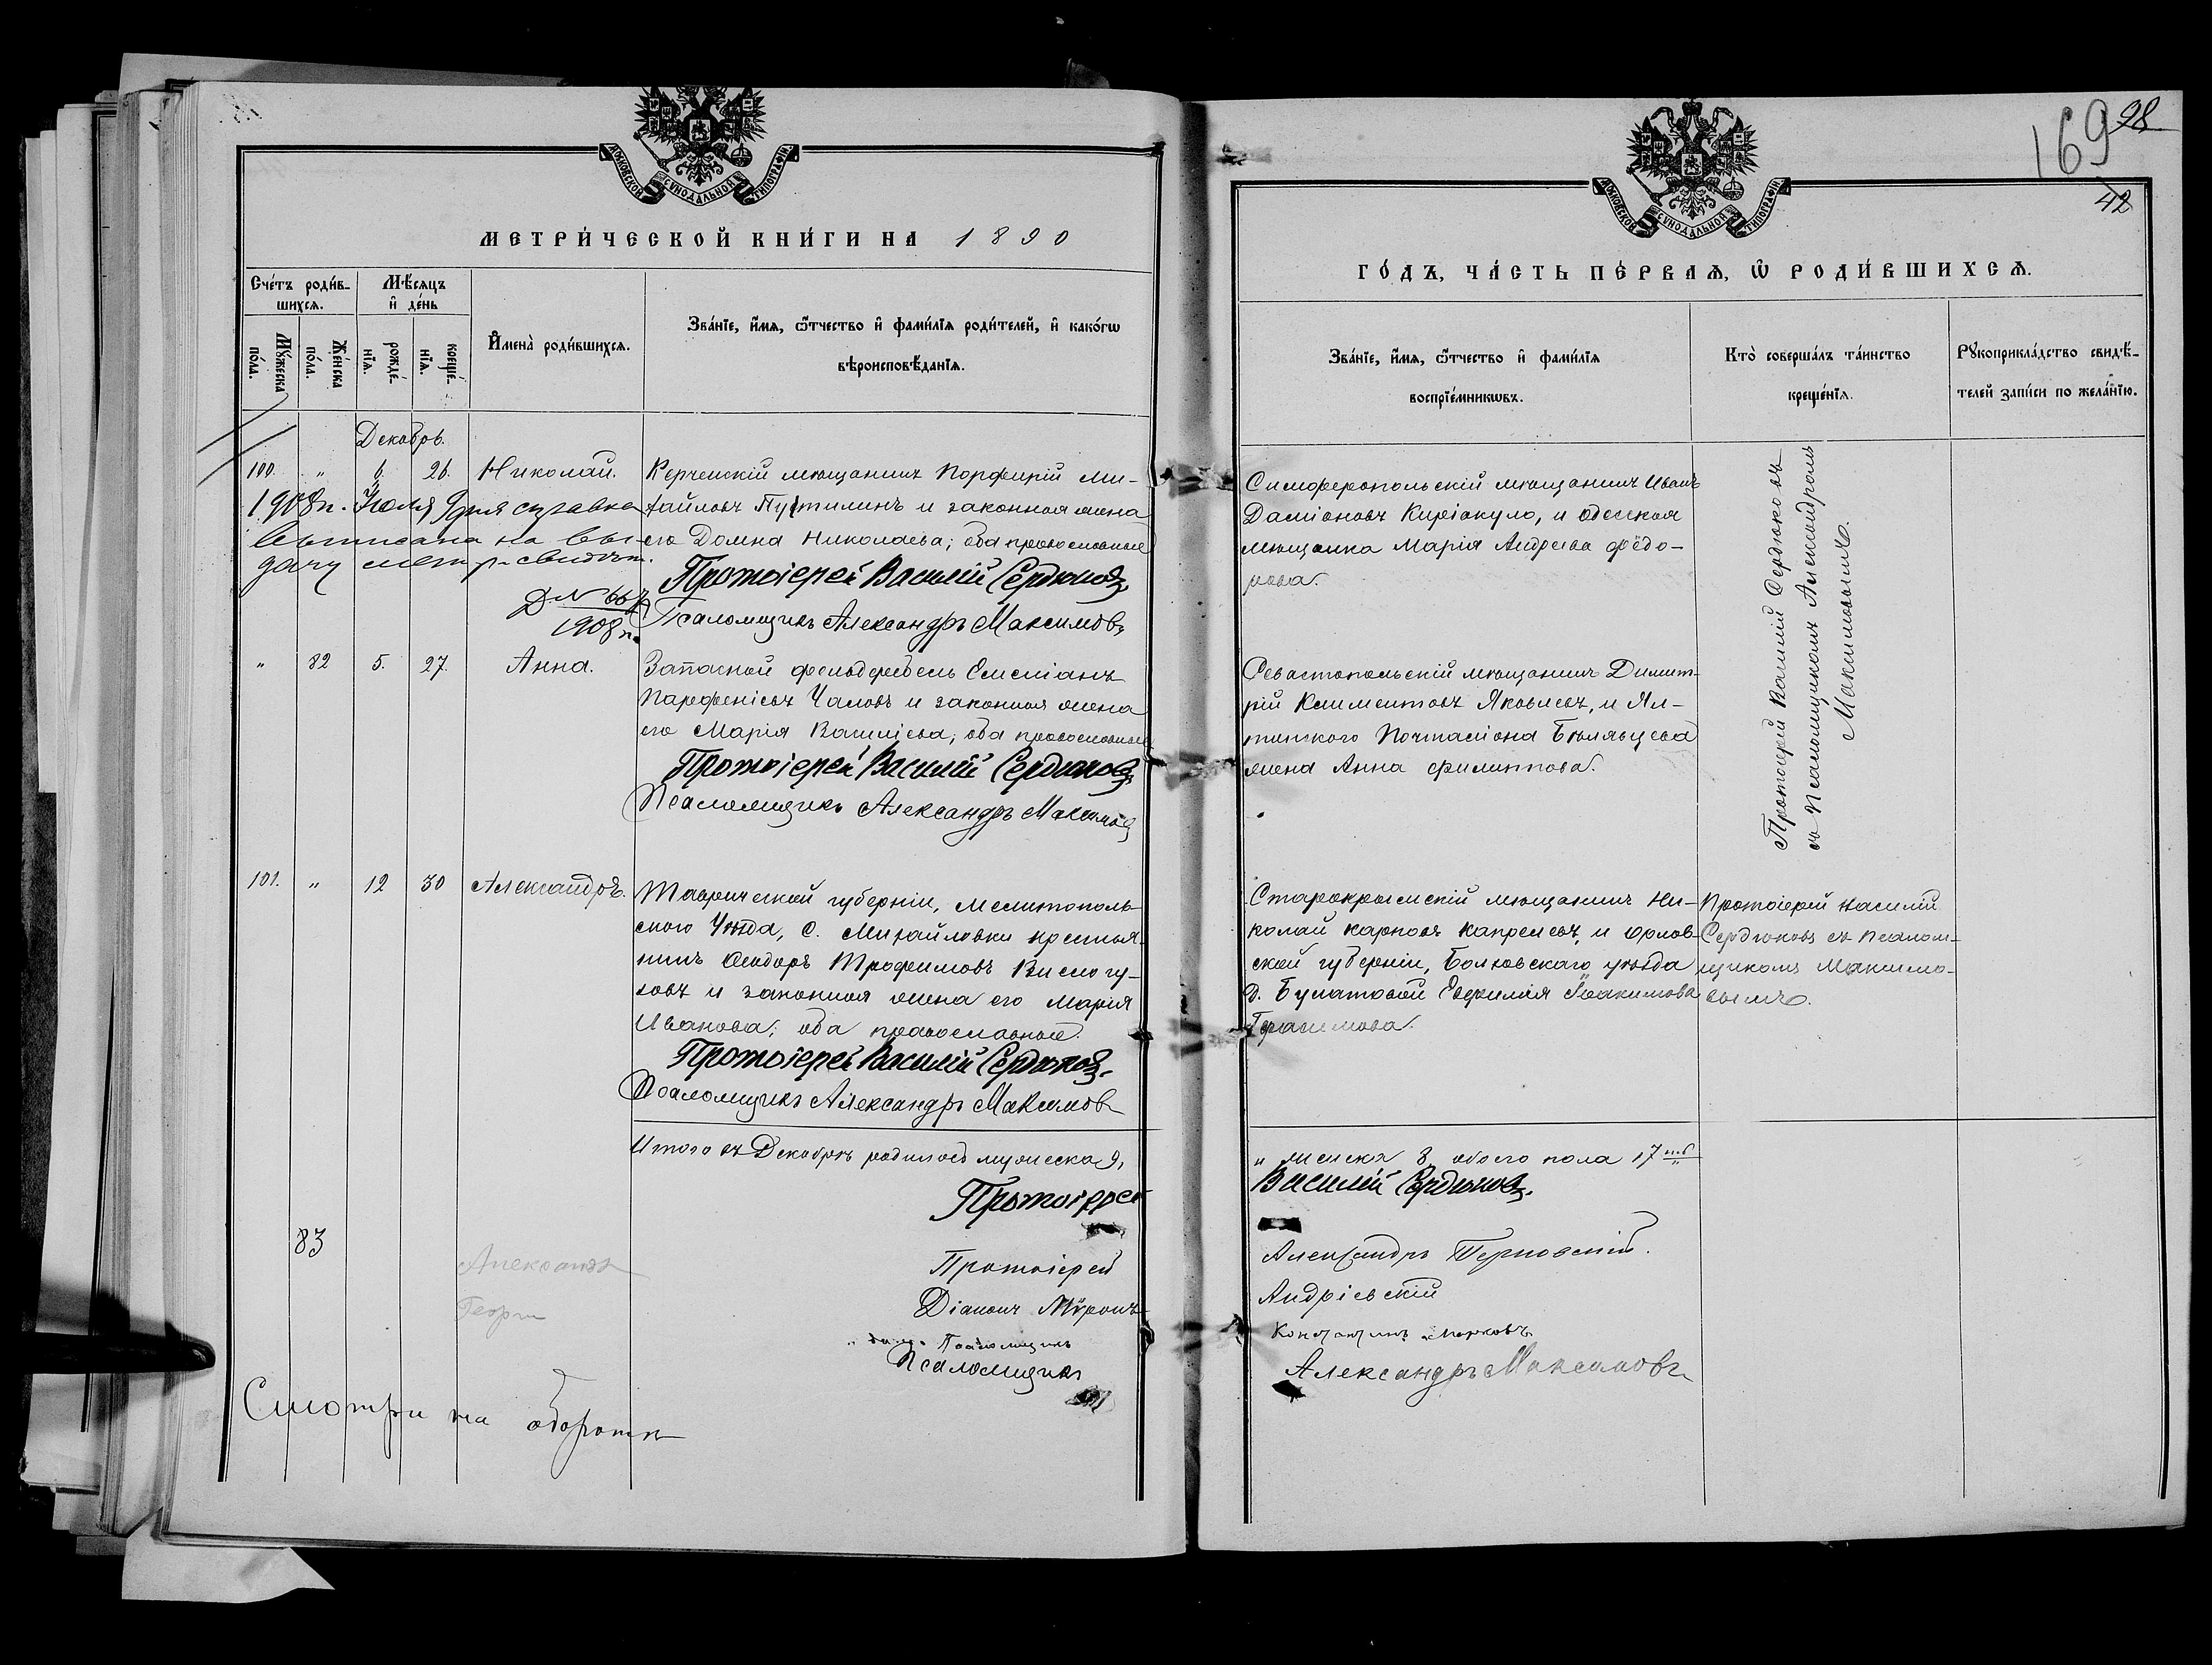 МОСКОВСКОЙ СУНОДАЛЬНОЙ ТИПОГРАФІИ
МЕТРИ́ЧЕСКОЙ КНИ́ГИ НА 1890
Сче́тъ роди́в-
шихсѧ.
Мѣ́сѧцъ
и҆ де́нь
Мꙋ́жеска
по́ла.
Же́нска
по́ла.
рожде́-
нїѧ.
креще́-
нїѧ.
И҆мена̀ роди́вшихсѧ.
Зва́нїе, и҆́мѧ, ѻ҆́тчество и҆ фами́лїѧ роди́телей, и҆ како́гѡ
вѣроисповѣ́данїѧ.
Декабрь.
100. " 6. 26. Николай.
Керченскій мѣщанинъ Порфирій Ми-
хайловъ Путилинъ и законная жена
его Домна Николаева; оба православные
1908 г. Іюля 9 дня справка
выписана на вы-
дачу метр. свидѣт.
Д. № 667
1908 г.
Протоіерей Василій Сердюковъ
Псаломщикъ Александръ Максимовъ
" 82 5. 27. Анна.
Запасной фельдфебель Емеліанъ
Парфеніевъ Чаловъ и законная жена
его Марія Василіева; оба православные
Протоіерей Василій Сердюковъ
Псаломщикъ Александръ Максимовъ
101. " 12 30 Александръ.
Таврической губерніи, Мелитополь-
скаго Уѣзда, С. Михайловки крестья-
нинъ Ѳеодоръ Трофимовъ Вислогу-
зовъ и законная жена его Марія
Иванова; оба православные.
Протоіерей Василій Сердюковъ.
Псаломщикъ Александръ Максимовъ
Итого въ Декабрѣ родилось мужеска 9,
Протоіерей
83
Александръ
Протоіерей
Георги
Діаконъ Мѵронъ
Псаломщикъ
Псаломщикъ
Смотри на оборотѣ
169 98
42
МОСКОВСКОЙ СУНОДАЛЬНОЙ ТИПОГРАФІИ
ГО́ДЪ, ЧА́СТЬ ПЕ́РВАѦ, Ѡ҆ РОДИ́ВШИХСѦ.
Зва́нїе, и҆́мѧ, ѻ҆́тчество и҆ фами́лїѧ
воспрїе́мникѡвъ.
Кто̀ соверша́лъ та́инство
креще́нїѧ.
Рꙋкоприкла́дство свидѣ́-
телей за́писи по жела́нїю.
Симферопольскій мѣщанинъ Иванъ
Даміановъ Киріакуло, и одесская
мѣщанка Марія Андреева Ѳёдо-
рова.
Протоіерей Василій Сердюковъ
съ Псаломщикомъ Александромъ
Максимовымъ.
Севастопольскій мѣщанинъ Димит-
рій Климентовъ Яковлевъ, и Ял-
тинского Почталіона Бѣлявцева
жена Анна Филиппова.
Старокрымскій мѣщанинъ Ни-
колай Карповъ Капрелевъ, и Орлов-
ской губерніи, Болховскаго уѣзда
д. Булатовой Евфимія Іоакимова
Герасимова.
Протоіерей Василій
Сердюковъ съ псалом-
щикомъ Максимо-
вымъ.
" женска 8 обоего пола 17
Василій Сердюковъ.
Александръ Терновскій.
Андріевскій
Константинъ Марковъ
Александръ Максимовъ